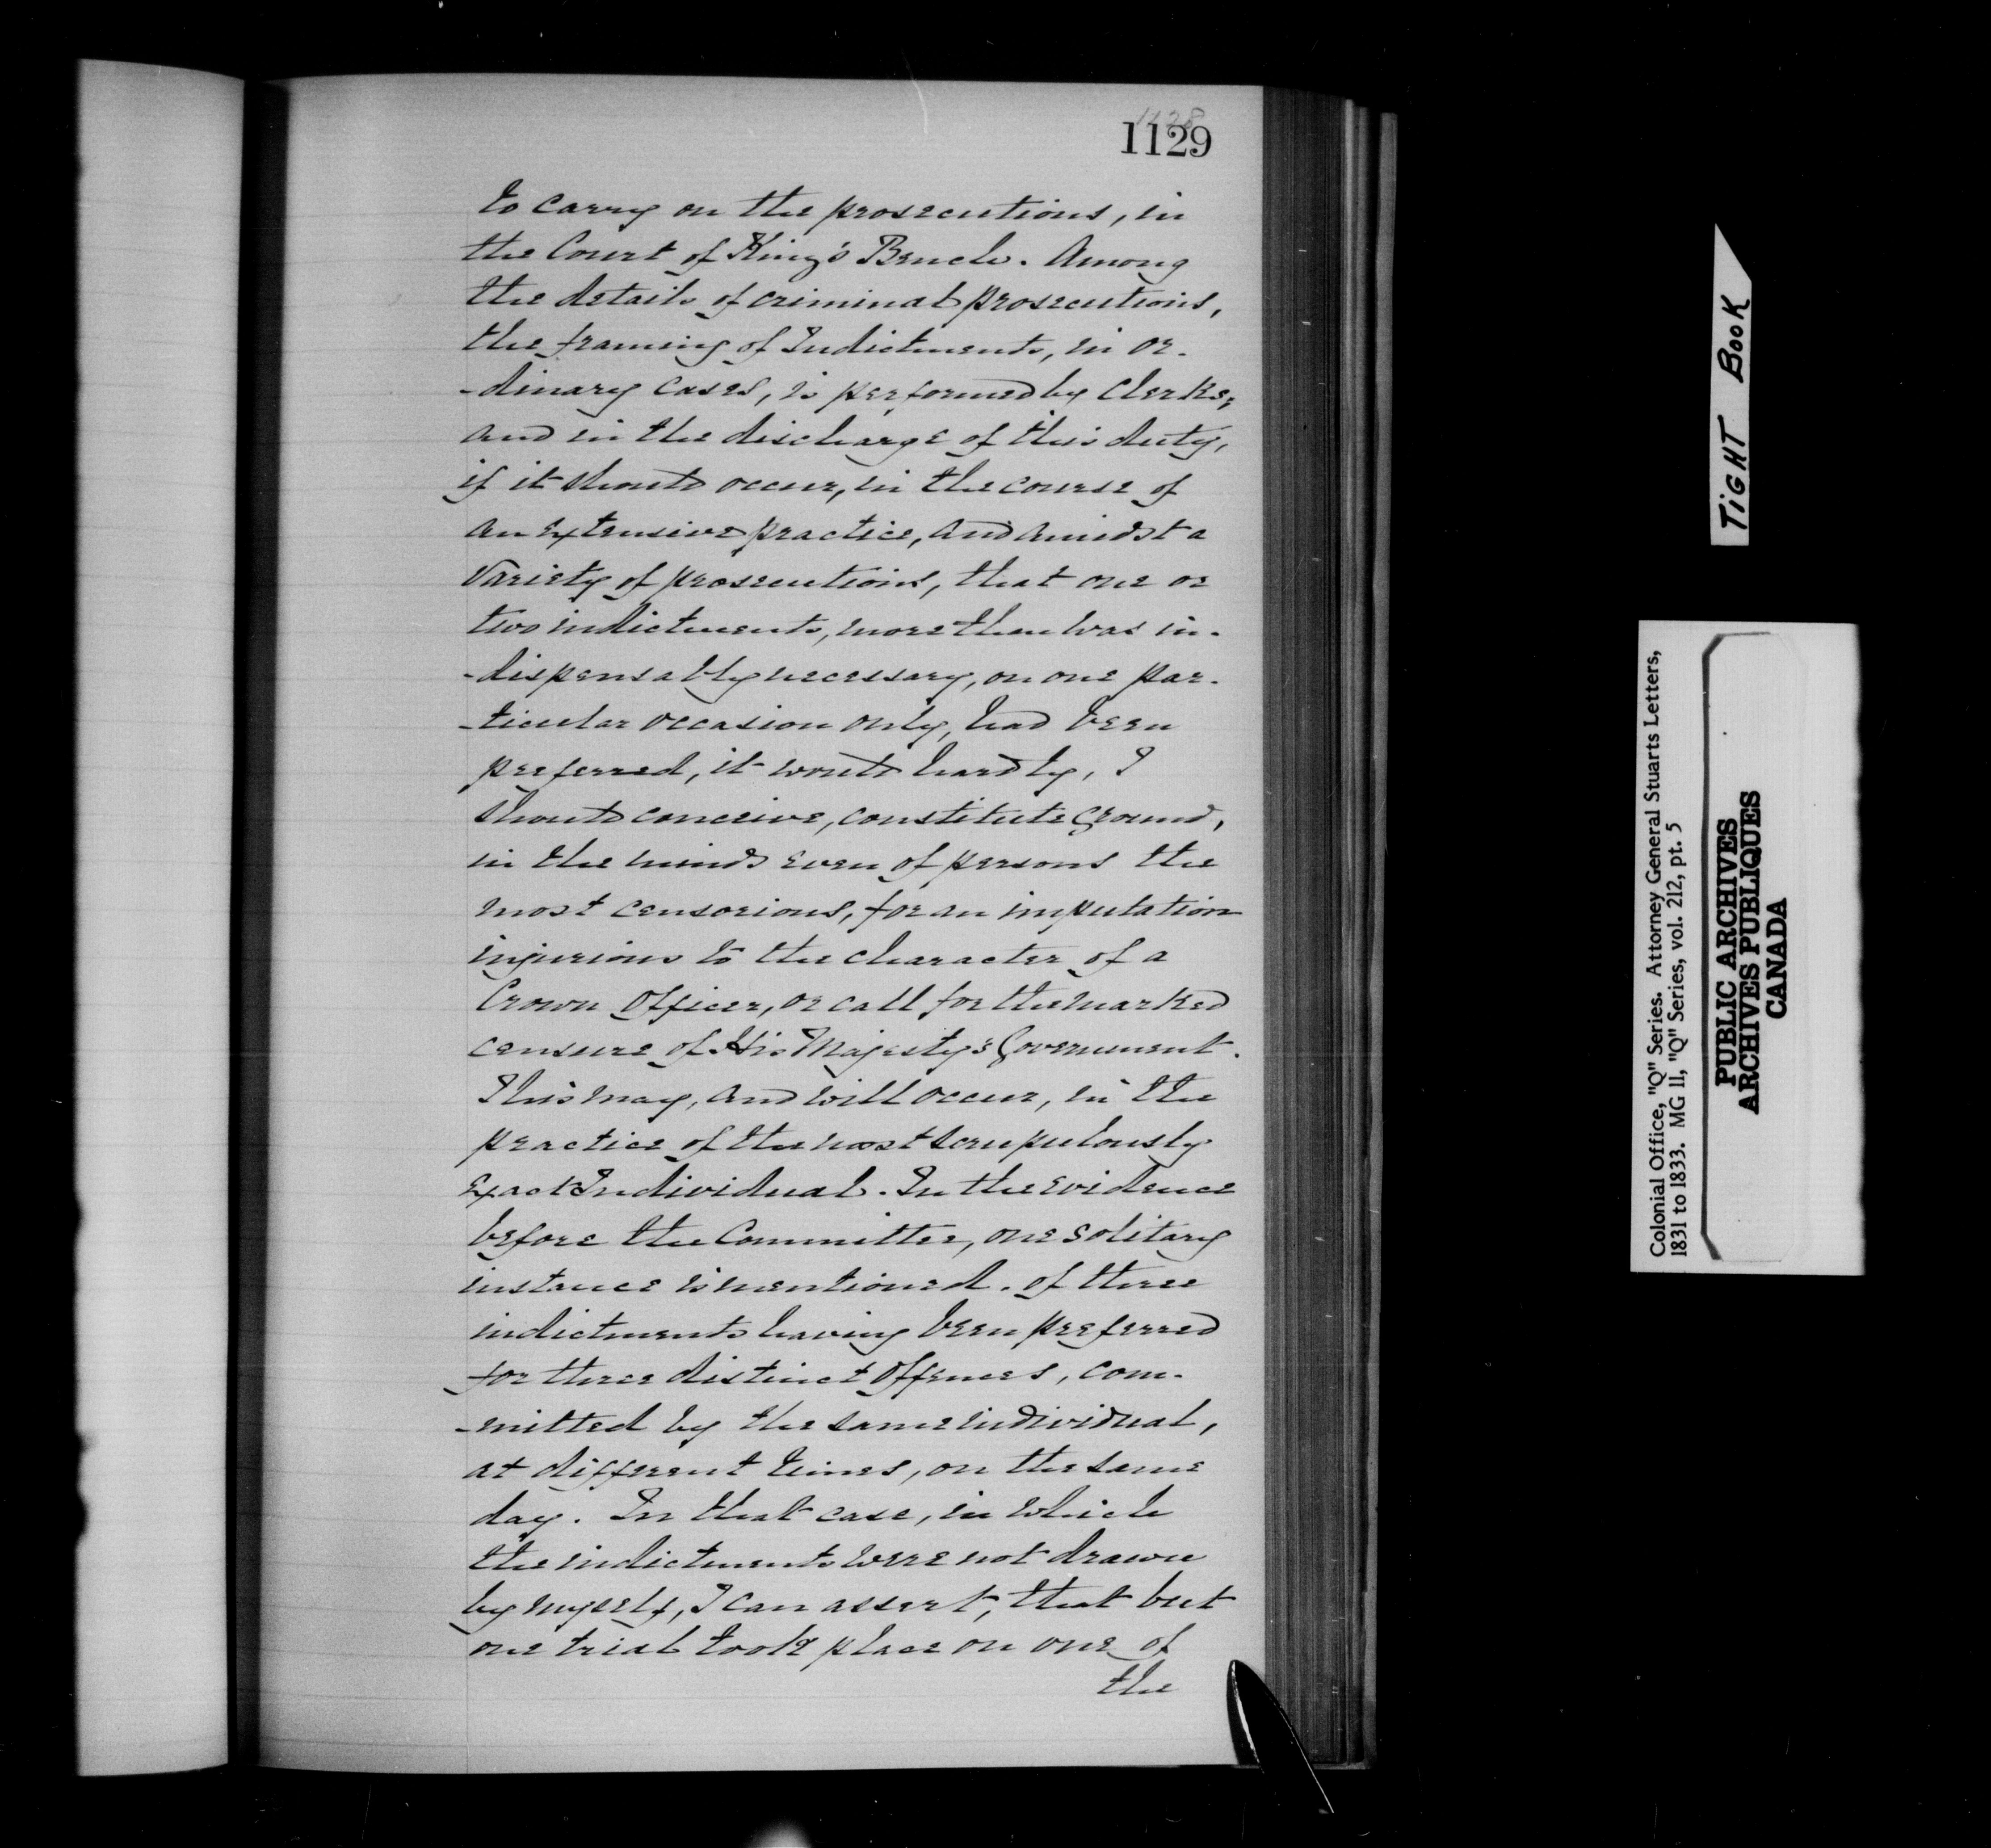 1128
1129
to carry on the prosecutions, in
the Court of King's Bench. Among
the details of criminal prosecutions,
the framing of Indictments, in or-
-dinary cases, is performed by Clerks;
and in the discharge of this duty,
if it should occur, in the course of
an extensive practice, and amidst a
variety of prosecutions, that one or
two indictments, more than was in-
-dispensably necessary, on one par-
-ticular occasion only, had been
preferred, it would hardly, I
should conceive, constitute ground,
in the minds even of persons the
most censorious, for an imputation
injurious to the character of a
Crown Officer, or call for the marked
censure of His Majesty's Government.
This may, and will occur, in the
practice of the most scrupulously
exact Individual. In the evidence
before the Committee, one solitary
instance is mentioned. of three
indictments having been preferred
for three distinct offences, com-
-mitted by the same individual,
at different times, on the same
day. In that case, in which
the indictments were not drawn
by myself, I can assert, that but
one trial took place on one of
the
TIGHT BOOK
Colonial Office, "Q" Series. Attorney General Stuarts Letters,
1831 to 1833. MG 11, "Q" Series, vol. 212, pt. 5
PUBLIC ARCHIVES
ARCHIVES PUBLIQUES
CANADA